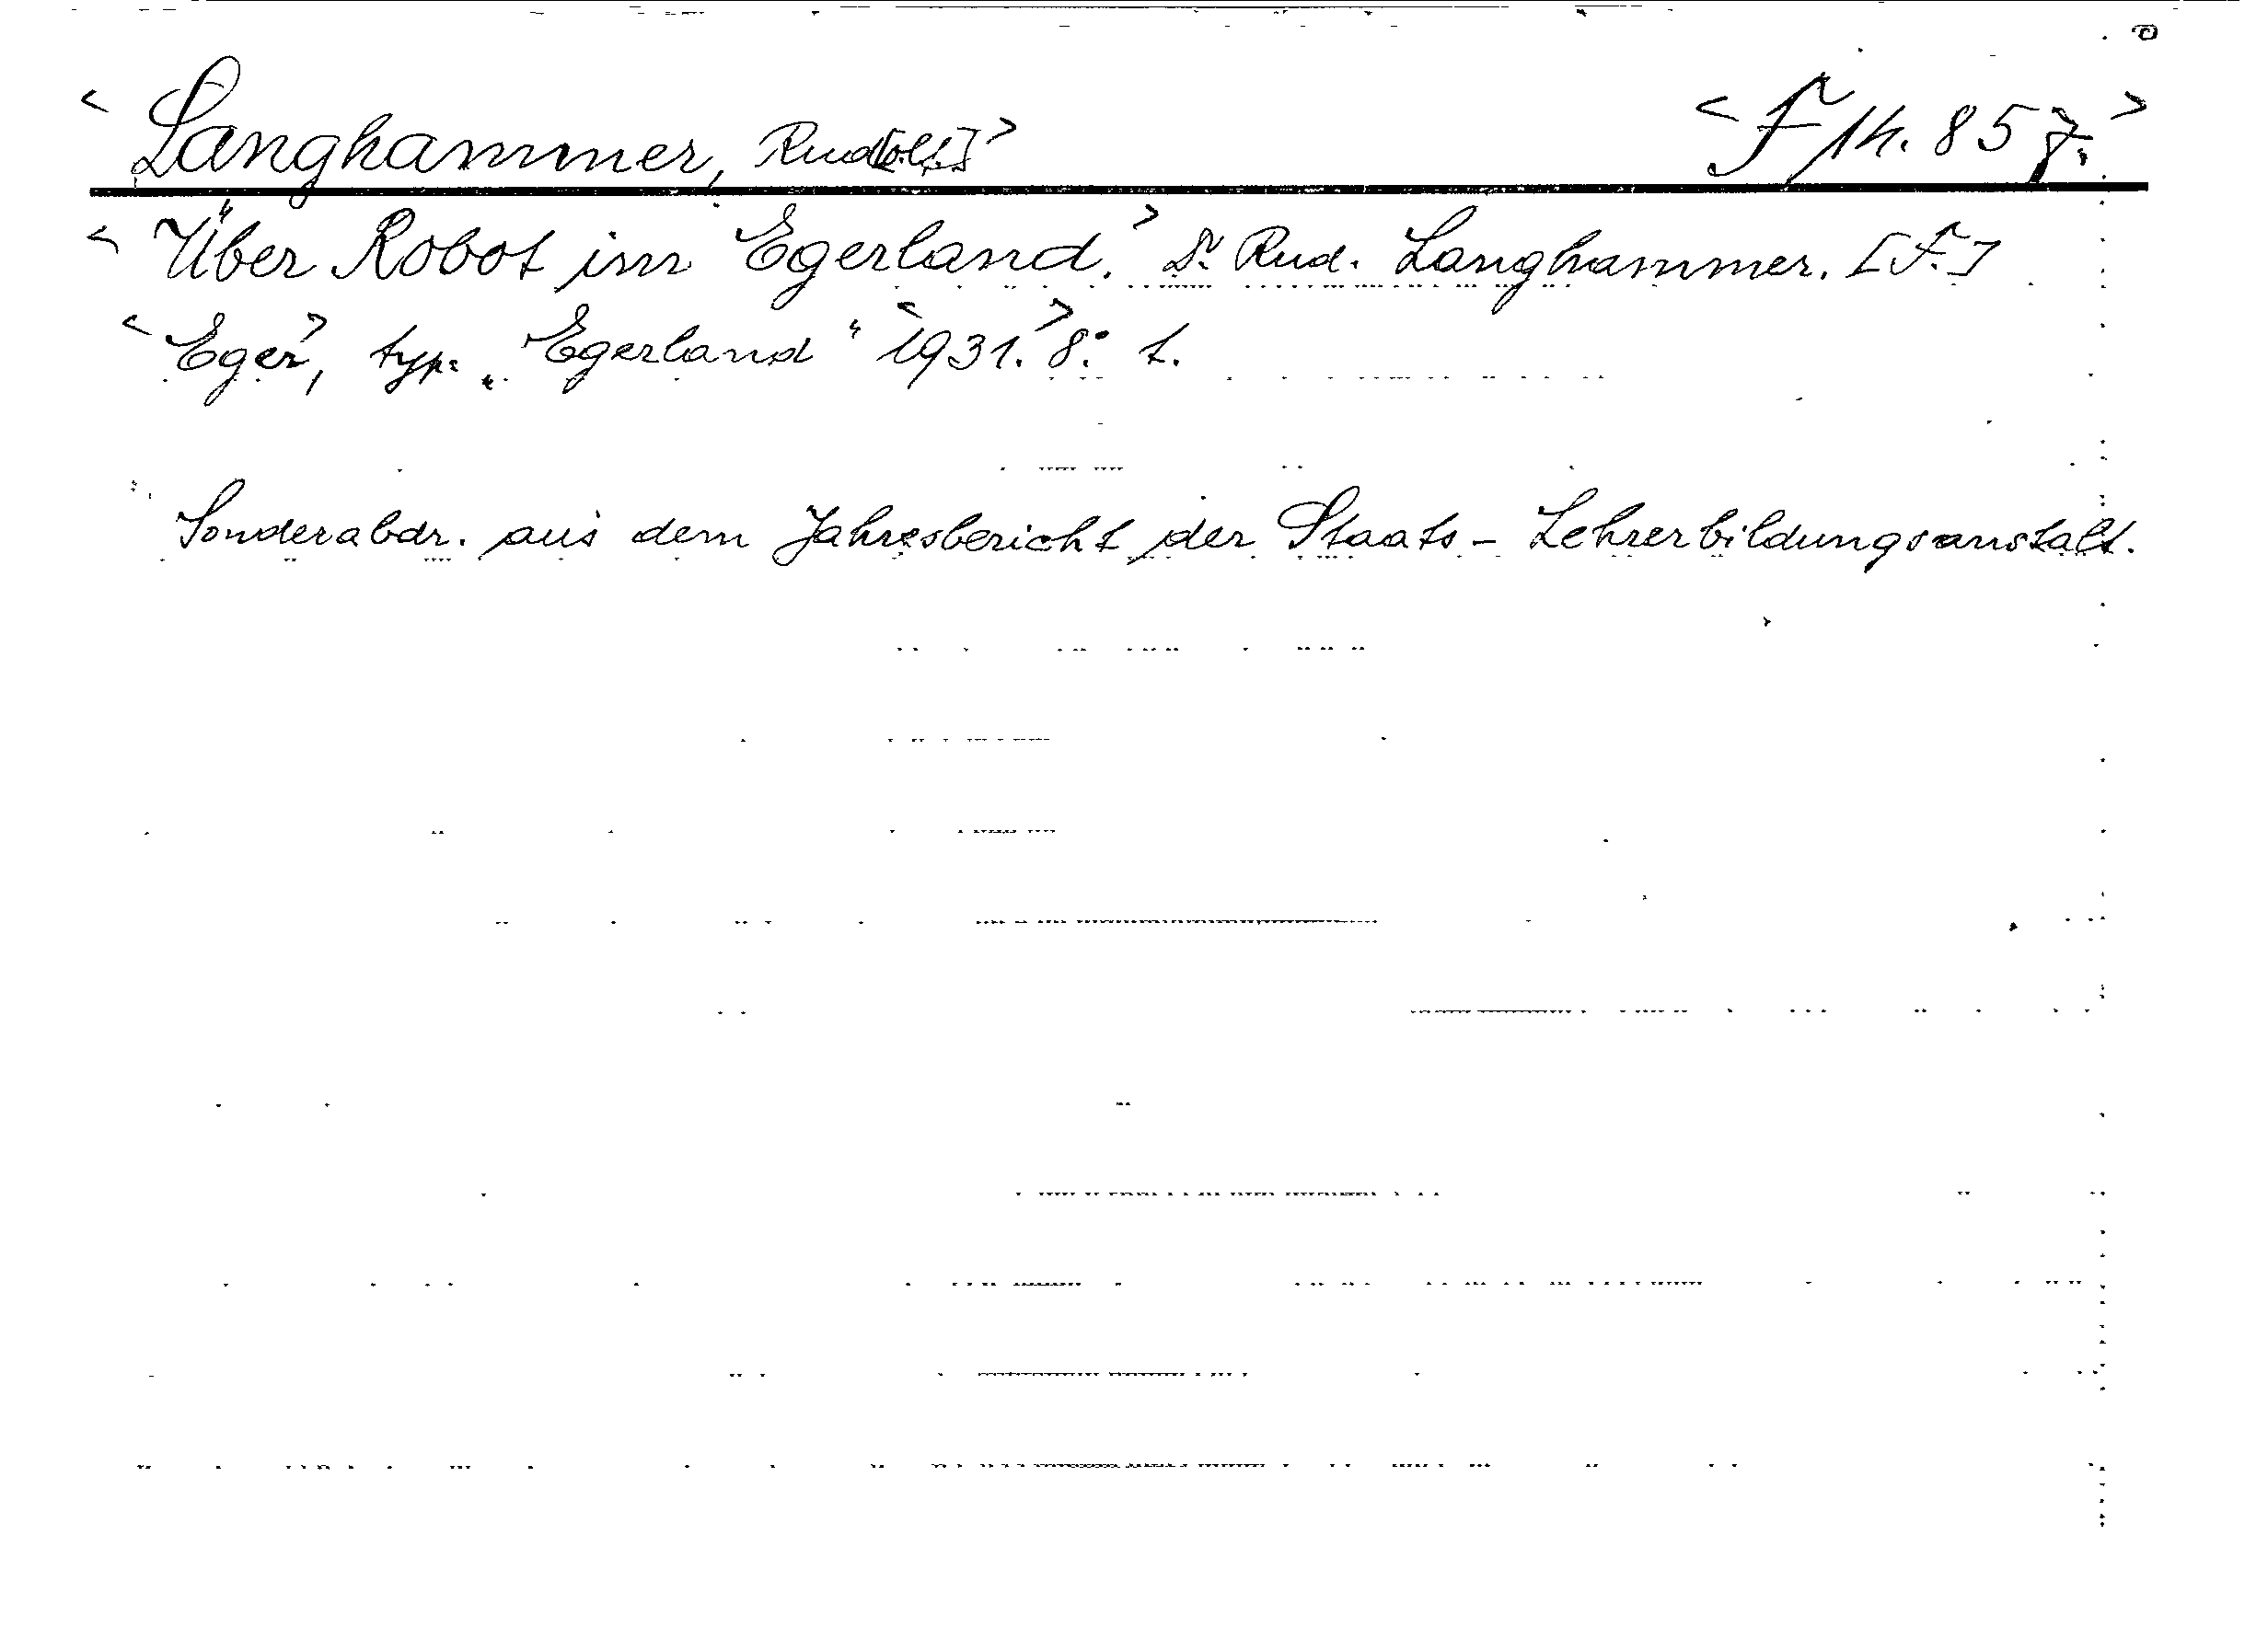 < Langhammer, Rud[olf] > < F 14.857. >
< Über Robot im Egerland. > Dr. Rud. Langhammer. [F.]
< Eger >, typ. „Egerland“ < 1931. > 8° 1.
Sonderabdr. aus dem Jahresbericht der Staats-Lehrerbildungsanstalt.